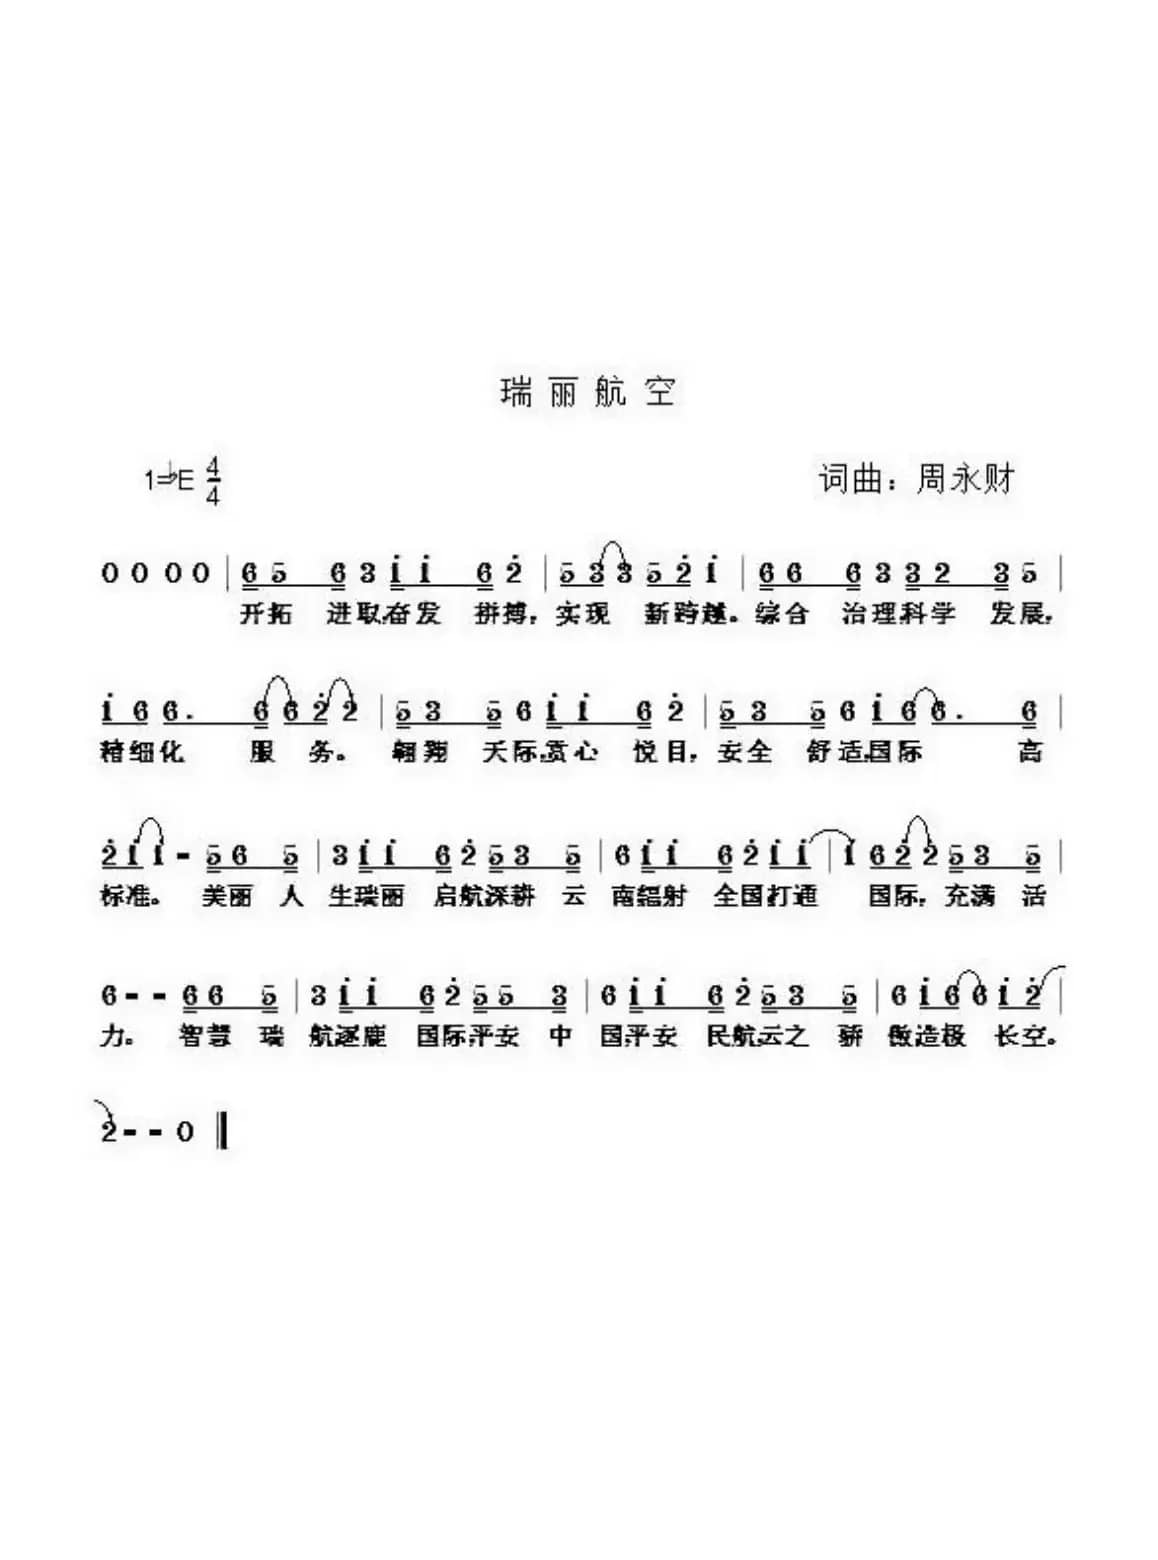 瑞丽航空
1=♭E 4/4 词曲：周永财
0 0 0 0 | 6 5 6 3 i i 6 2̇ | 5 3 3 5 2̇ i | 6 6 6 3 3 2 3 5 |
开拓 进取,奋发 拼搏，实现 新跨越。综合 治理,科学 发展，
i 6 6. 6 6 2̇ 2̇ | 5 3 5 6 i i 6 2̇ | 5 3 5 6 i 6 6. 6 |
精细化 服 务。 翱翔 天际,赏心 悦目，安全 舒适,国际 高
2̇ i i - 5 6 5 | 3 i i 6 2̇ 5 3 5 | 6 i i 6 2̇ i i | i 6 2̇ 2̇ 5 3 5 |
标准。 美丽 人 生瑞丽 启航,深耕 云 南辐射 全国打通 国际，充满 活
6 - - 6 6 5 | 3 i i 6 2̇ 5 5 3 | 6 i i 6 2̇ 5 3 5 | 6 i 6 6 i 2̇ |
力。 智慧 瑞 航逐鹿 国际,平安 中 国,平安 民航,云之 骄 傲,造极 长空。
2̇ - - 0 ‖